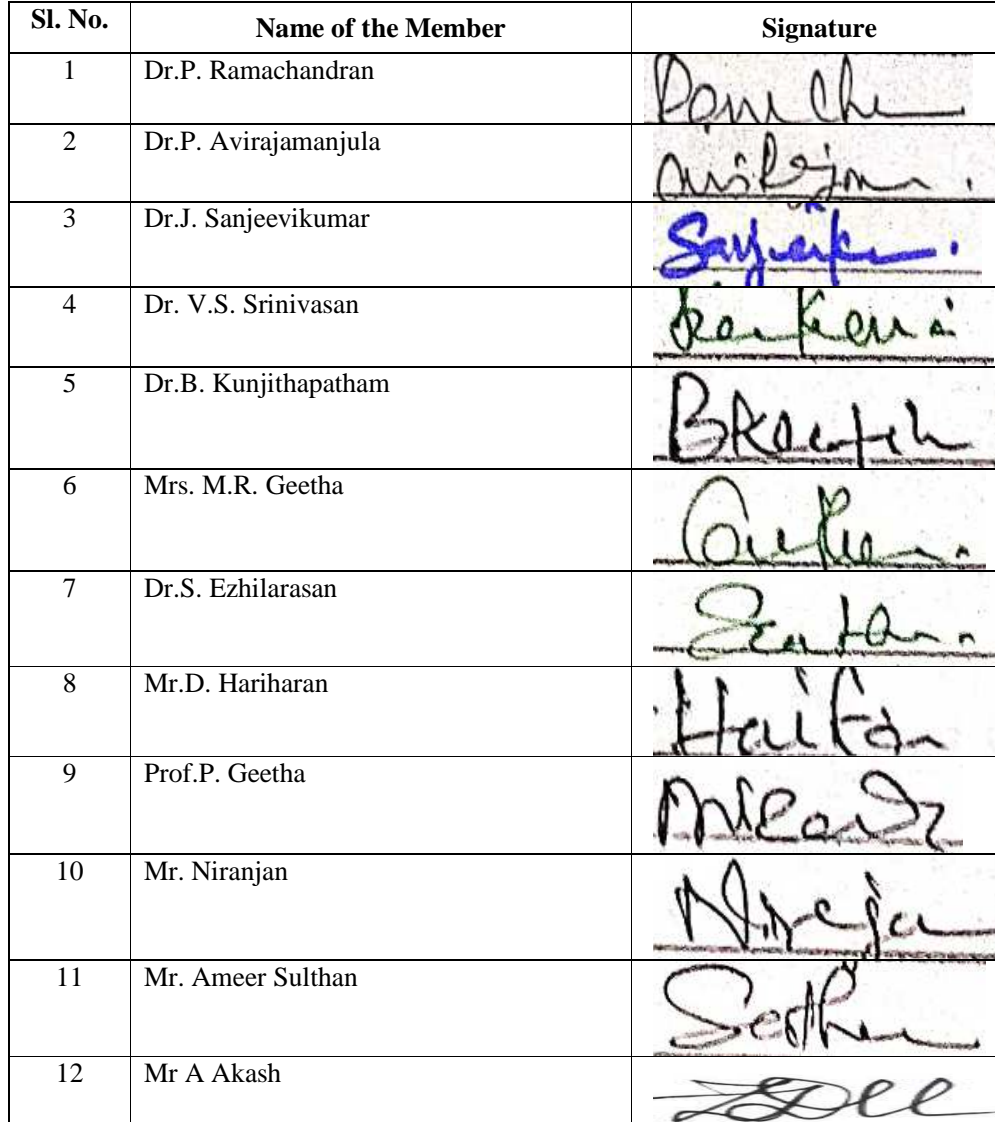 Sl. No. Name of the Member Signature
1 Dr.P. Ramachandran
2 Dr.P. Avirajamanjula
3 Dr.J. Sanjeevikumar
4 Dr. V.S. Srinivasan
5 Dr.B. Kunjithapatham
6 Mrs. M.R. Geetha
7 Dr.S. Ezhilarasan
8 Mr.D. Hariharan
9 Prof.P. Geetha
10 Mr. Niranjan
11 Mr. Ameer Sulthan
12 Mr A Akash